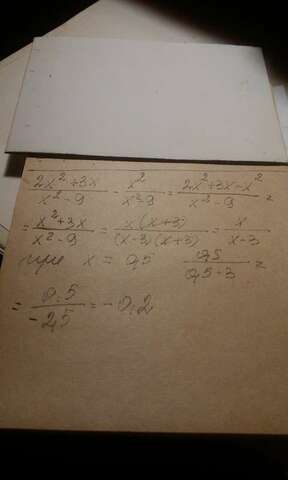 (2x² + 3x)/(x² - 9) - x²/(x² - 9) = (2x² + 3x - x²)/(x² - 9) =
= (x² + 3x)/(x² - 9) = x(x+3)/((x-3)(x+3)) = x/(x-3)
при x = 0,5 0,5/(0,5-3) =
= 0,5/(-2,5) = -0,2